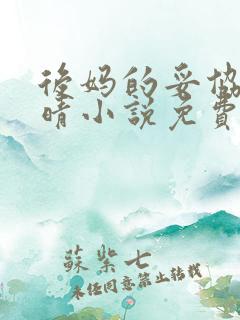 後妈的妥协
晴小说免費
蘇紫七
未经同意禁止转载